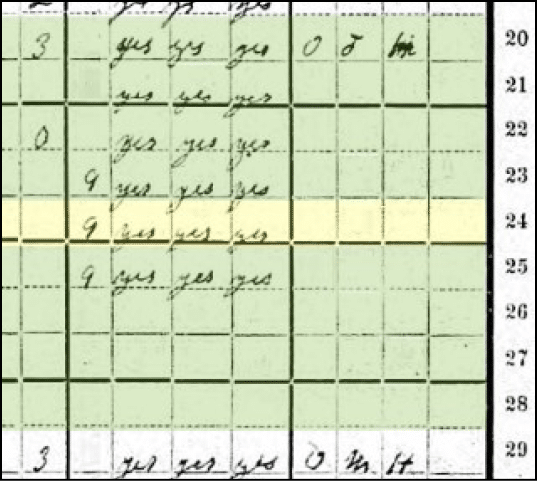 yes
3 yes yes yes O F 20
yes yes yes 21
0 yes yes yes 22
9 yes yes yes 23
9 yes yes yes 24
9 yes yes yes 25
26
27
28
3 yes yes yes O M H 29